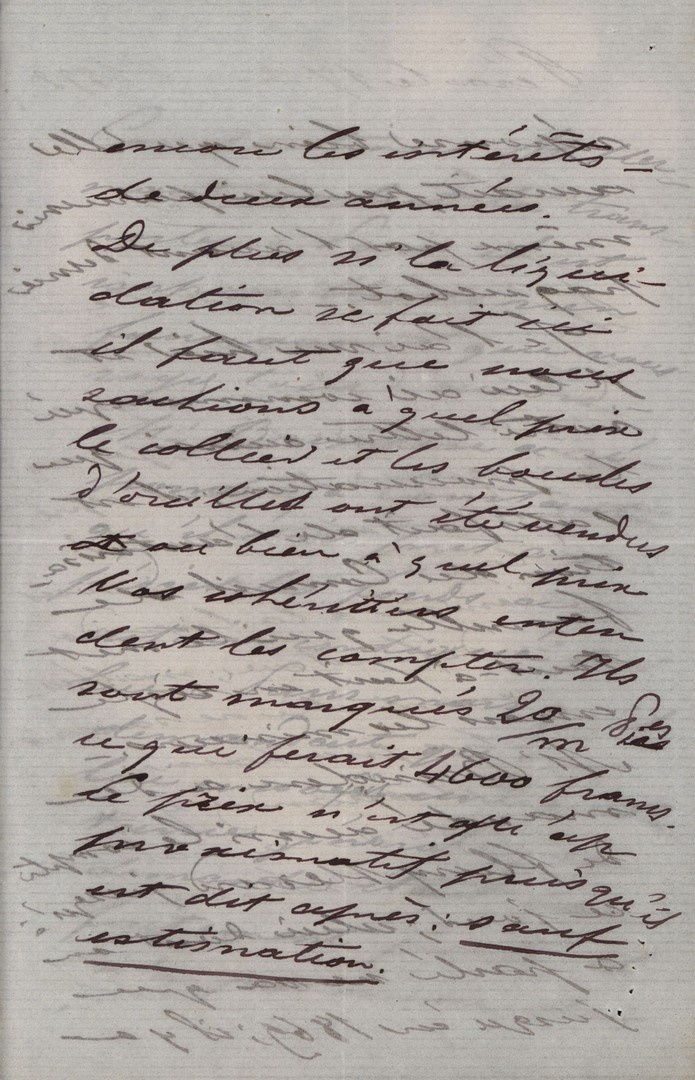 encore les intérêts
de deux années.
De plus si la liqui-
dation se fait ici
il faut que nous
sachions à quel prix
le collier et les boucles
d'oreilles ont été vendus
ou bien à quel prix
Nos cohéritiers enten
dent les compter. Ils
sont marqués 20/m
ce qui ferait 4600 francs.
Le prix n'est qu'ap
proximatif puisqu'il
est dit après: sauf
estimation.